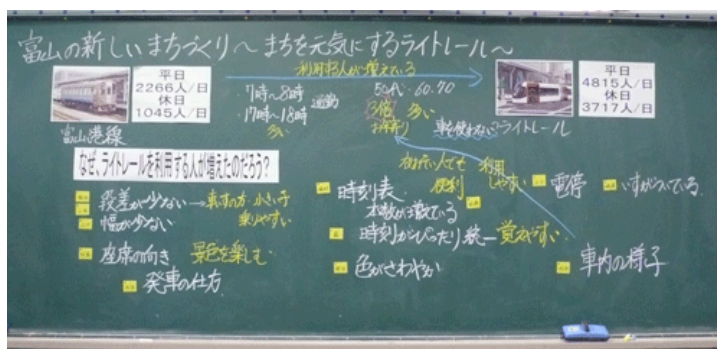 富山の新しいまちづくり～まちを元気にするライトレール～
平日
2266人/日
休日
1045人/日
富山港線
利用する人が増えている
7時〜8時
17時〜18時
通勤
多い
50代・60.70
3倍 多い
お年寄り
平日
4815人/日
休日
3717人/日
車を使わない?ライトレール
なぜ、ライトレールを利用する人が増えたのだろう?
段差が少ない
幅が少ない
小さい子
乗りやすい
座席の向き 景色を楽しむ
発車の仕方
時刻表
本数が増えている
便利
利用
しやすい
時刻がぴったり統一 覚えやすい
色がさわやか
電停
いすがついている
車内の様子